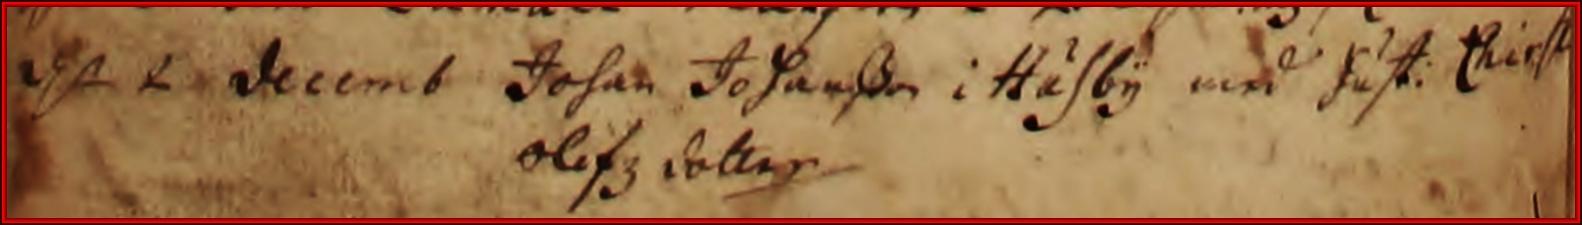 decemb Johan Johanßon i Håsbÿ med hust: Chirst
olefz dotter